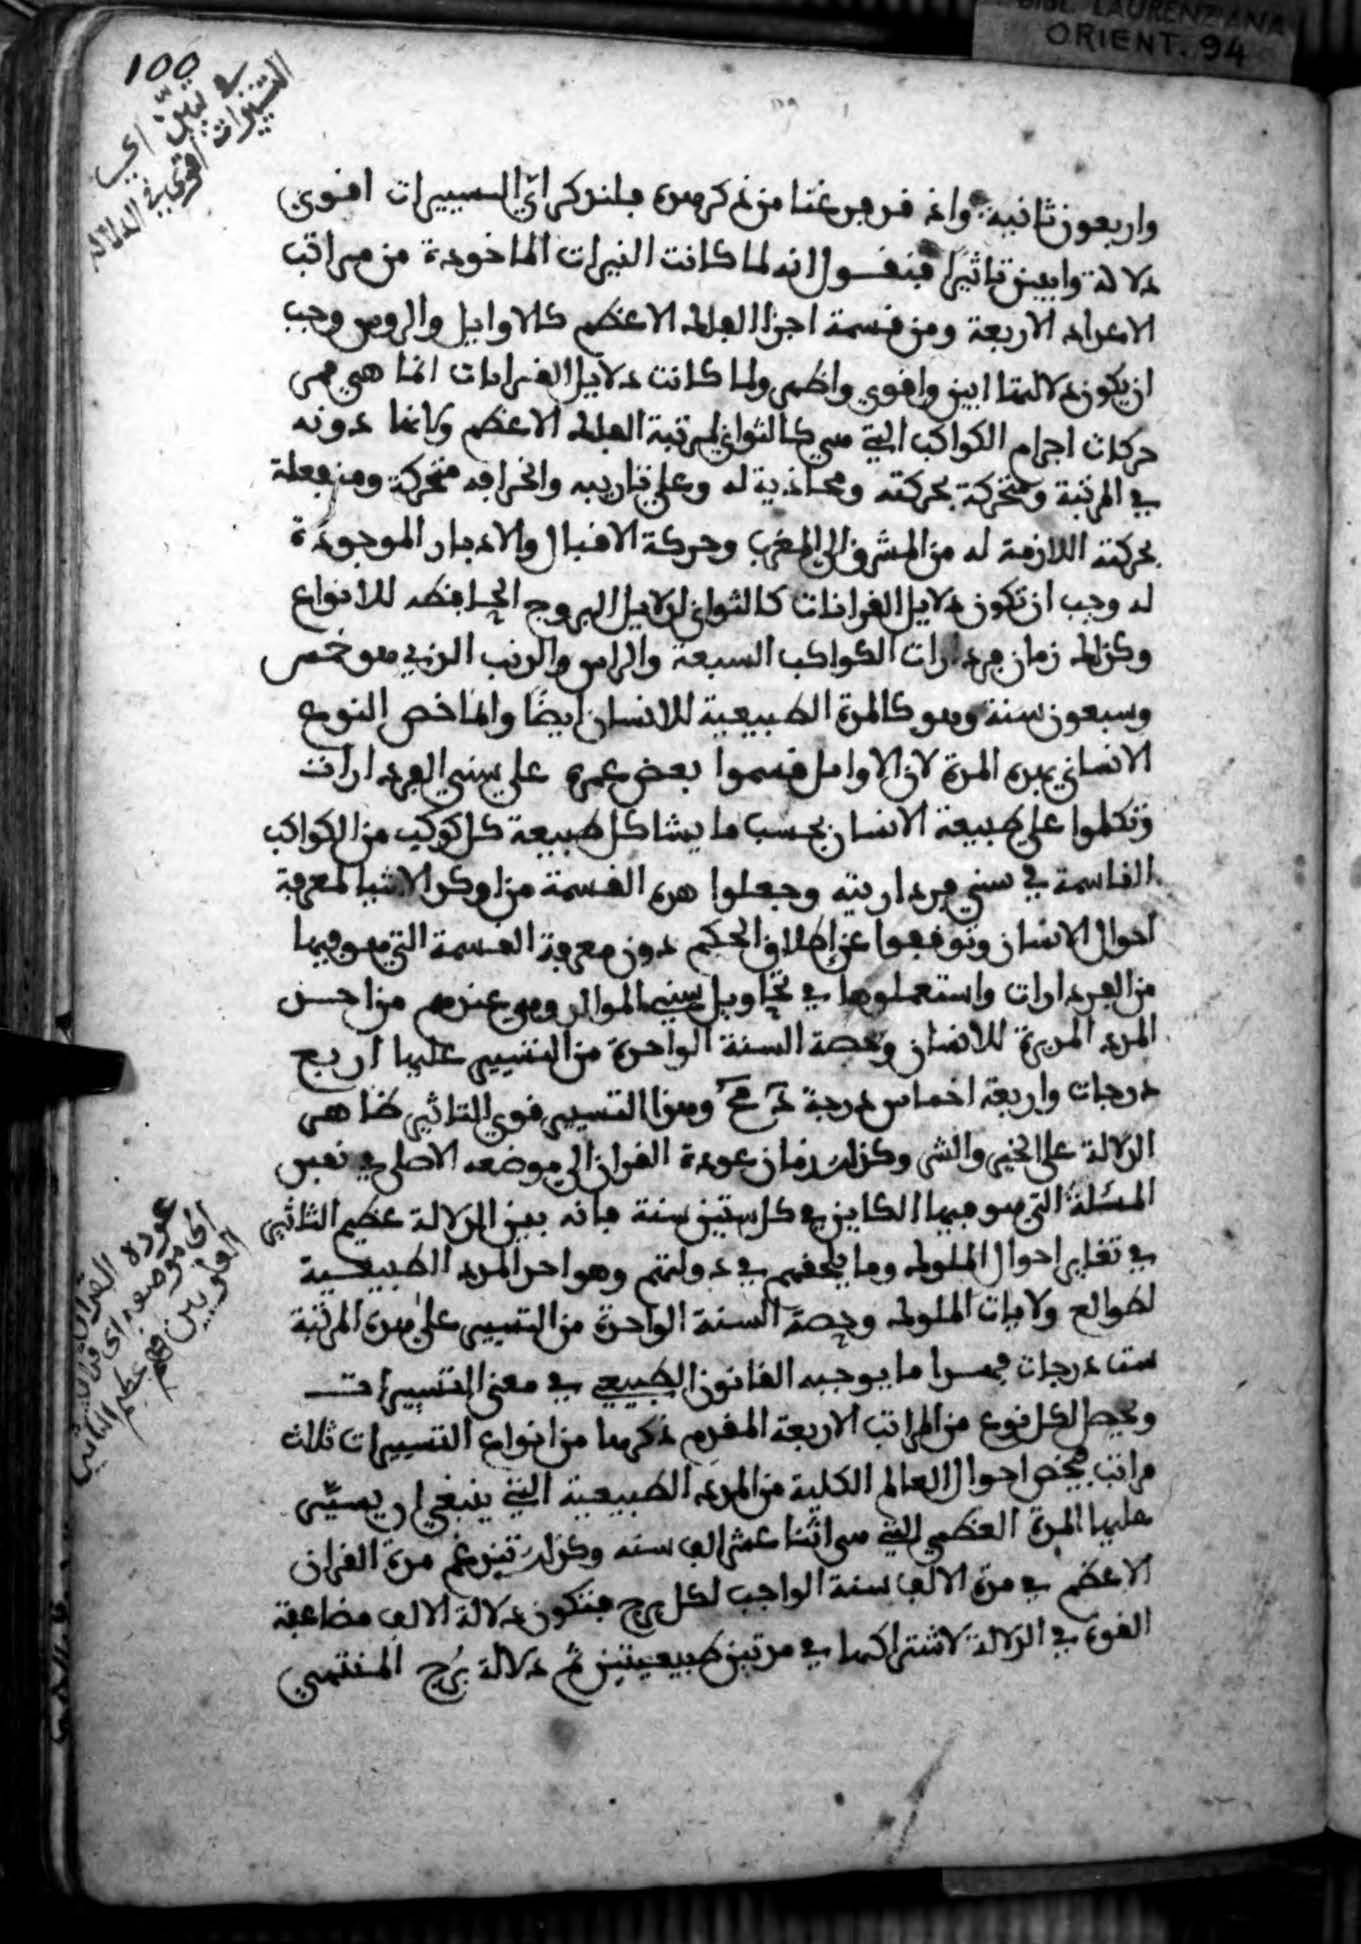 BIBL. LAURENZIANA
ORIENT. 94
100
في تبيين اي
التسييرات اقوى في الدلالة
واربعون ثانية واذ قد فرغنا من ذكر هذه فلنذكر اي التسييرات اقوى
دلالة وابين تاثيرا فنقول انه لما كانت التسييرات الماخوذة من مراتب
الاعداد الاربعة ومن قسمة اجزا الفلك الاعظم كلاوايل والروس وجب
ان يكون دلالتها ابين واقوى واظهر ولما كانت دلايل القرانات انما هي من
حركات اجرام الكواكب التي هي كالثواني لمرتبة الفلك الاعظم وكانها دونه
في المرتبة ومتحركة بحركته ومحاذية له وعلى تاريبه وانحرافه متحركة ومنفعلة
بحركته اللازمة له من المشرق الى المغرب وحركة الاقبال والادبار الموجودة
له وجب ان تكون دلايل القرانات كالثواني لدلايل البروج الحافظه للانواع
وكذلك زمان فردارات الكواكب السبعة والراس والذنب الذي هو خمس
وسبعون سنة وهو كالمدة الطبيعية للانسان ايضا وانما خص النوع
الانساني بهذه المدة لان الاوايل قسموا بعض عمره على سني الفردارات
وتكلموا على طبيعة الانسان بحسب ما يشاكل طبيعة كل كوكب من الكواكب
القاسمة في سني فرداريته وجعلوا هذه القسمة من اوكد الاشيا لمعرفة
احوال الانسان وتوقفوا عن اطلاق الحكم دون معرفة القسمة التي هو فيها
من الفردارات واستعملوها في تحاويل سني المواليد وهي عندهم من احسن
المدد المدبرة للانسان وحصة السنة الواحدة من التسيير عليها اربع
درجات واربعة اخماس درجة د مح وهذا التسيير قوي التاثير ظاهر
الدلالة على الخير والشر وكذلك زمان عودة القران الى موضعه الاصلي في نفس
المثلثة التي هو فيها الكاين في كل ستين سنة فانه بين الدلالة عظيم التاثير
في تغاير احوال الملوك وما يلحقهم في دولتهم وهو احد المدد الطبيعية
لطوالع ولايات الملوك وحصة السنة الواحدة من التسيير على هذه المرتبة
ست درجات فهذا ما يوجبه القانون الطبيعي في معنى التسييرات
ويحصل لكل نوع من المراتب الاربعة المقدم ذكرها من انواع التسييرات ثلاث
مراتب فيخص احوال العالم الكلية من المدد الطبيعية التي ينبغي ان يسير
عليها المدة العظمى التي هي اثنا عشر الف سنه وكذلك تندغم مدة القران
الاعظم في مدة الالف سنة الواجب لكل برج فتكون دلالة الالف مضاعفة
القوة في الدلالة لاشتراكها في مرتبتين طبيعيتين ثم دلالة برج المنتهى
عودة القران
الى موضعه اي قران
العلويين
عظيم التاثير